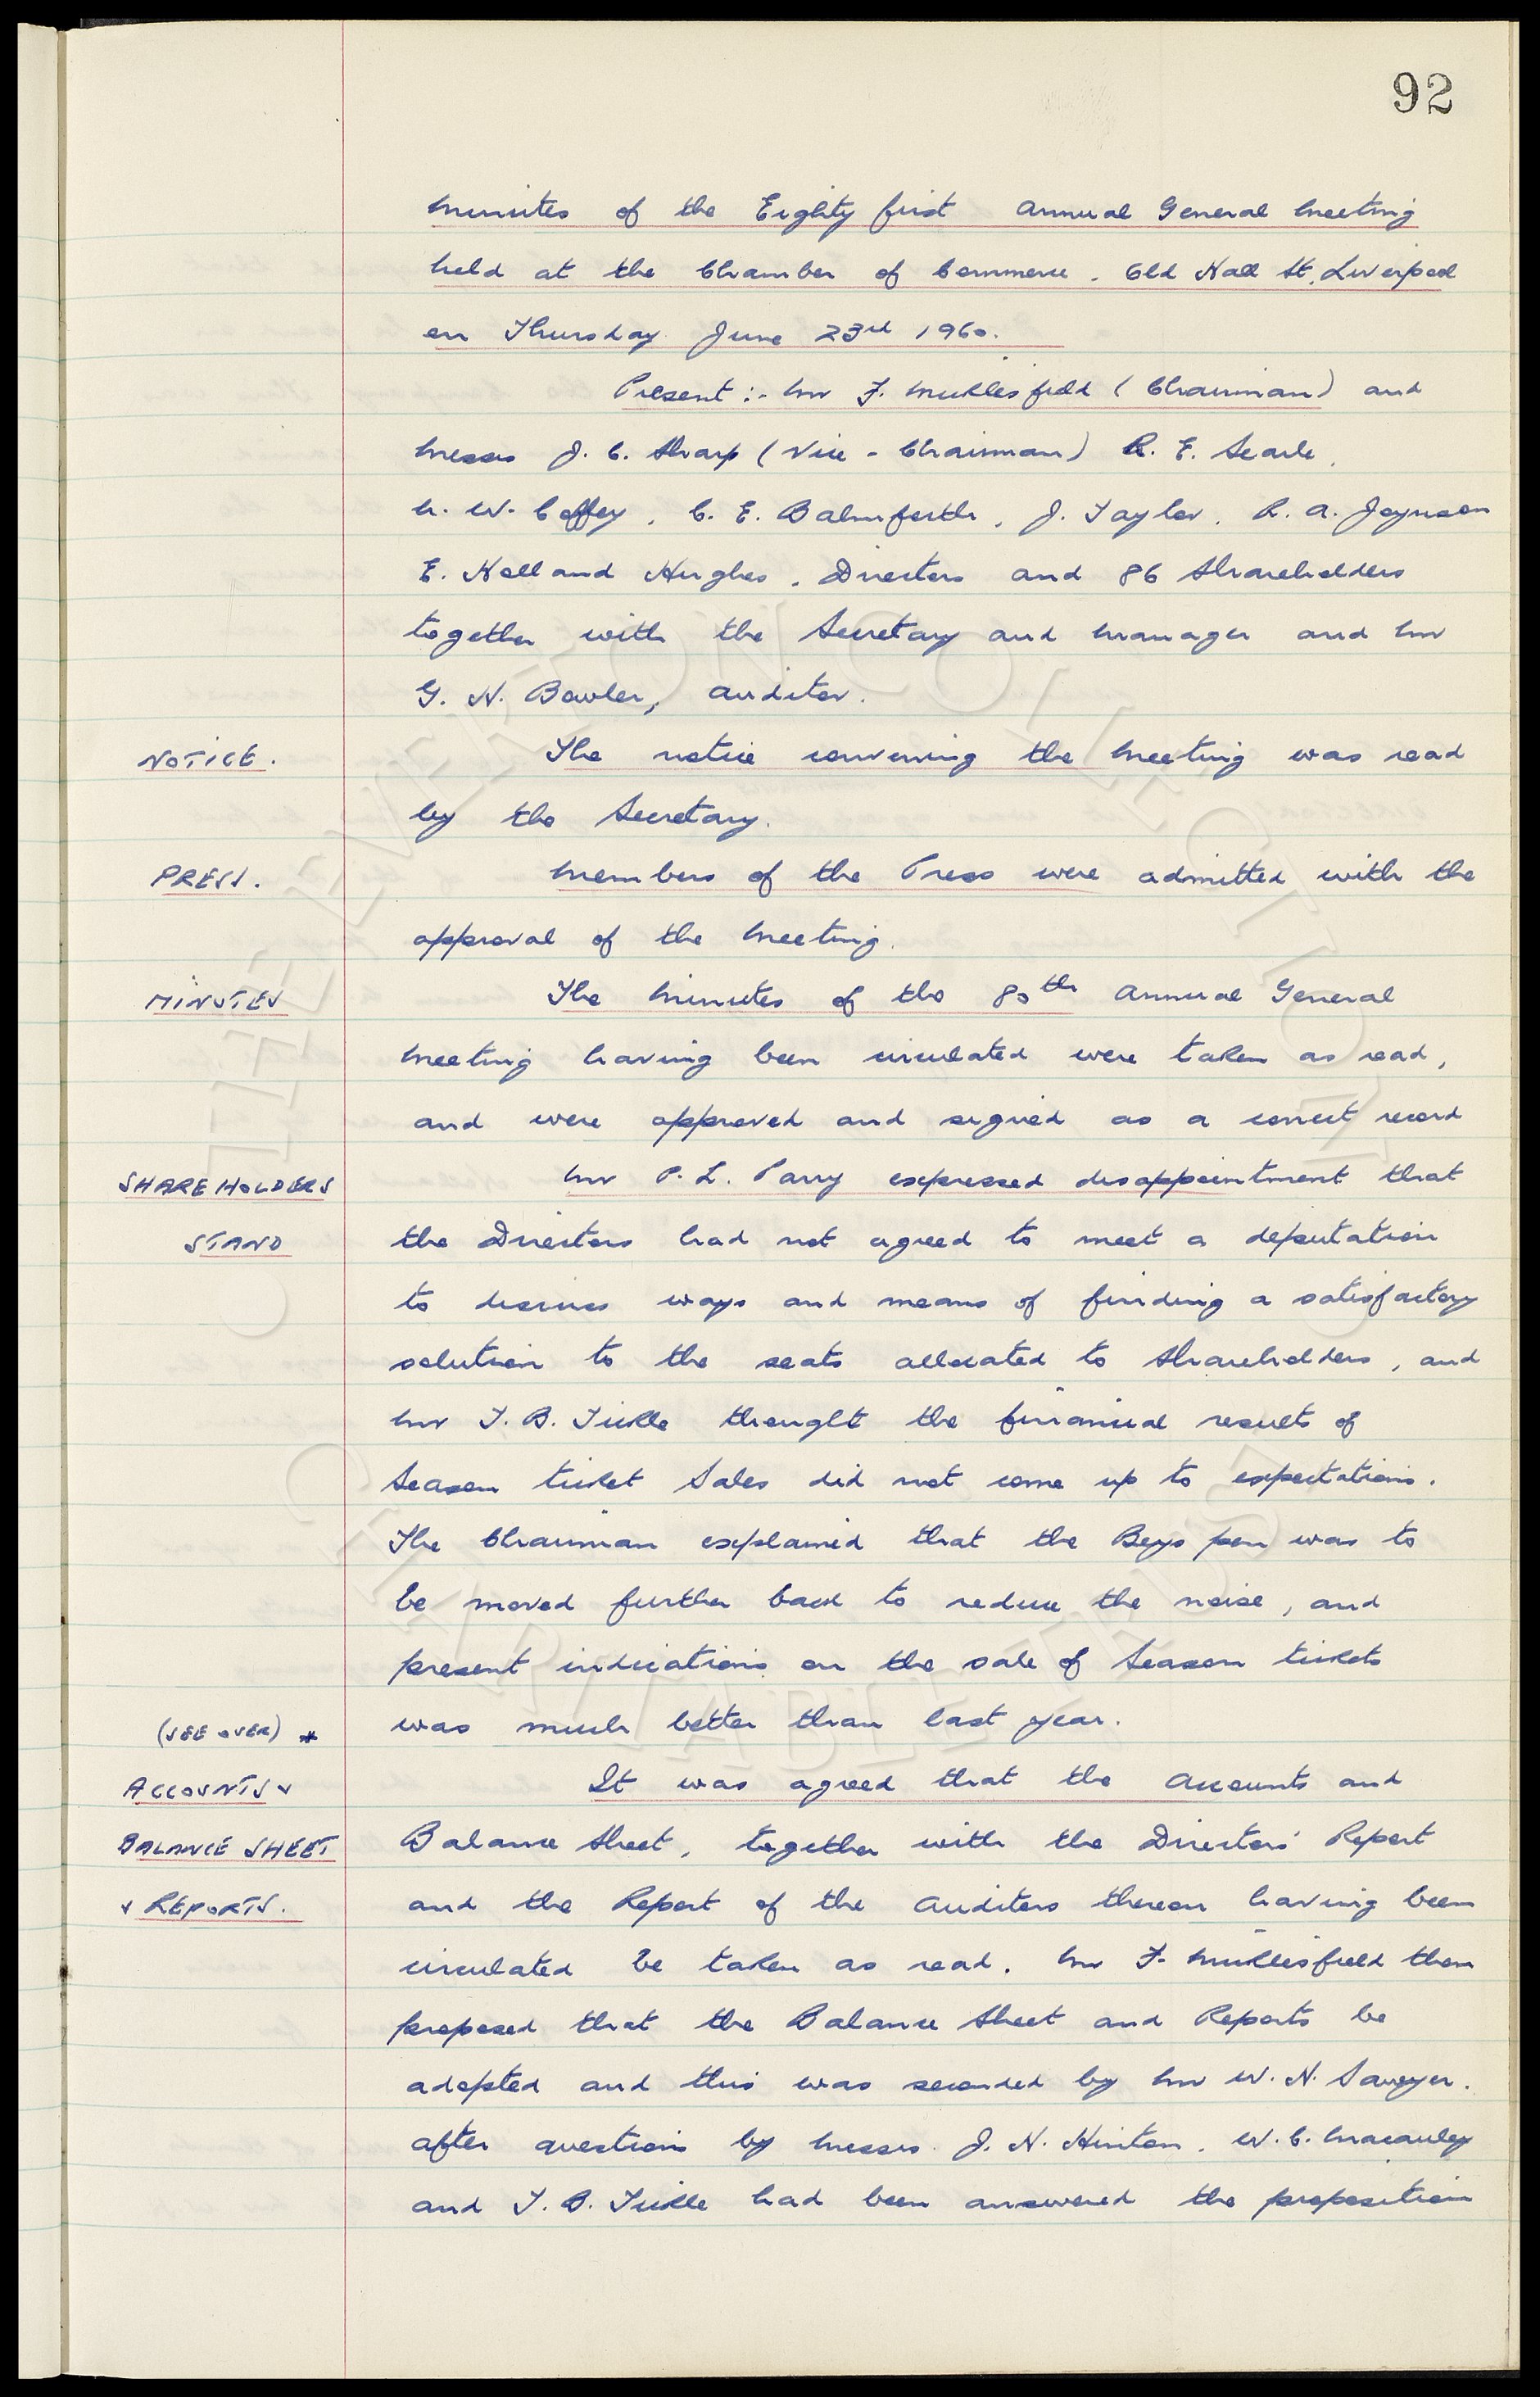 92
Minutes of the Eighty first Annual General Meeting
held at the Chamber of Commerce. Old Hall St, Liverpool
on Thursday June 23rd 1960.
Present :- Mr F. Micklesfield (Chairman) and
Messrs J. C. Sharp (Vice-Chairman) R. E. Searle,
N. W. Coffey, C. E. Balmforth, J. Taylor, R. A. Joynson
E. Holland Hughes, Directors and 86 Shareholders
together with the Secretary and Manager and Mr
G. H. Bowler, Auditor.
NOTICE. The notice convening the Meeting was read
by the Secretary.
PRESS. Members of the Press were admitted with the
approval of the Meeting.
MINUTES The Minutes of the 80th Annual General
Meeting having been circulated were taken as read,
and were approved and signed as a correct record
SHAREHOLDERS Mr P. L. Parry expressed disappointment that
STAND the Directors had not agreed to meet a deputation
to discuss ways and means of finding a satisfactory
solution to the seats allocated to Shareholders, and
Mr T. B. Tickle thought the financial results of
Season ticket Sales did not come up to expectations.
The Chairman explained that the Boys pen was to
be moved further back to reduce the noise, and
present indications on the sale of Season tickets
(SEE OVER) * was much better than last year.
ACCOUNTS & It was agreed that the Accounts and
BALANCE SHEET Balance Sheet, together with the Directors' Report
& REPORTS. and the Report of the Auditors thereon having been
circulated be taken as read. Mr F. Micklesfield then
proposed that the Balance Sheet and Reports be
adopted and this was seconded by Mr W. H. Sawyer.
After questions by Messrs. J. H. Hinton, W. C. Macauley
and T. B. Tickle had been answered the proposition
THE EVERTON COLLECTION
CHARITABLE TRUST